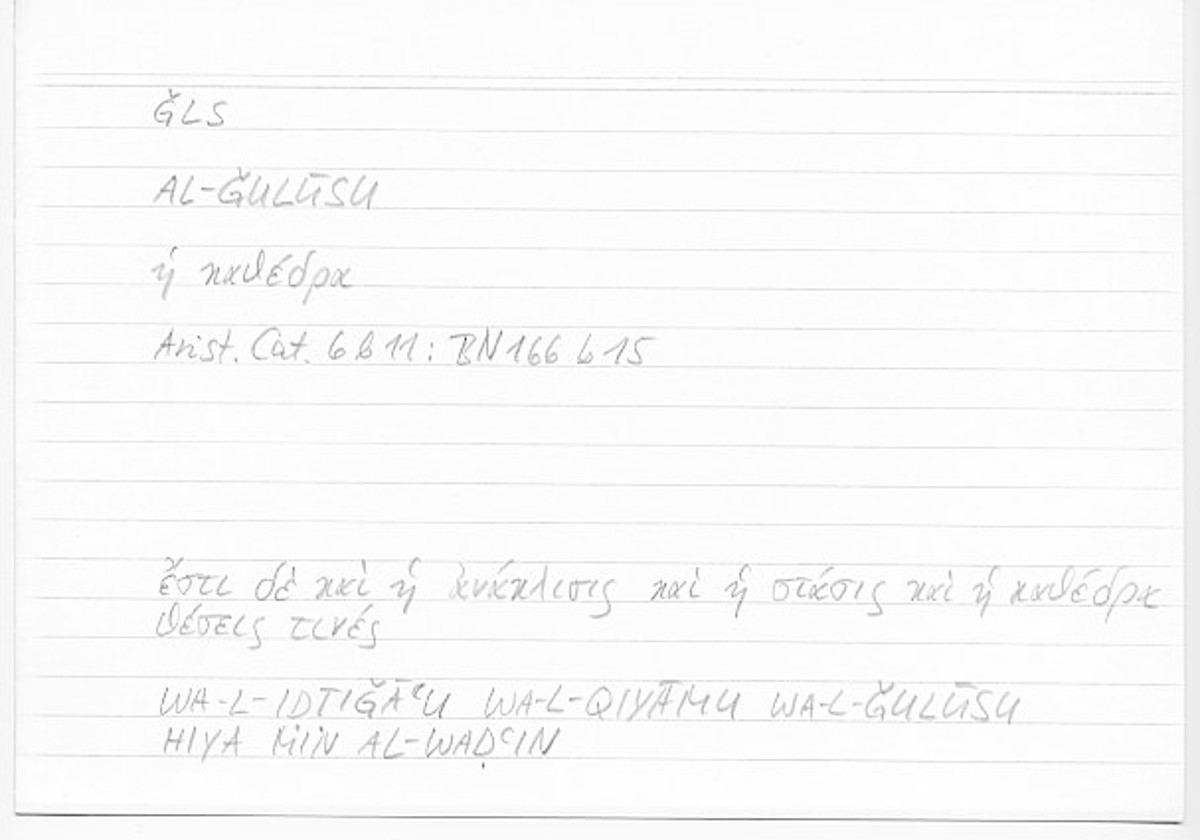 ǦLS
AL-ǦULŪSU
ἡ καθέδρα
Arist. Cat. 6 b 11 : BN 166 b 15
ἔστι δὲ καὶ ἡ ἀνάκλισις καὶ ἡ στάσις καὶ ἡ καθέδρα
θέσεις τινές
WA-L-IDTIǦĀʿU WA-L-QIYĀMU WA-L-ǦULŪSU
HIYA MIN AL-WAḌʿIN